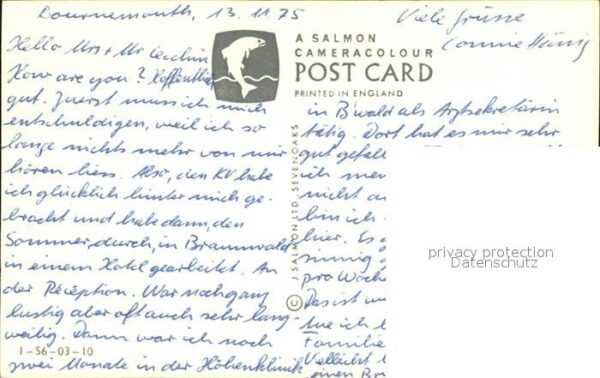 Bournemouth, 13.11.75
Hello Mrs + Mr
How are you? Hoffentlich
gut. Zuerst muss ich mich
entschuldigen, weil ich so
lange nichts mehr von mir
hören liess. Also, den KV habe
ich glücklich hinter mich ge-
bracht und habe dann, den
Sommer, durch, in Braunwald
in einem Hotel gearbeitet. An
der Réception. War noch ganz
lustig aber oft auch sehr lang-
weilig. Dann war ich noch
zwei Monate in der Höhenklinik
1-56-03-10
A SALMON
CAMERACOLOUR
POST CARD
PRINTED IN ENGLAND
© J. SALMON LTD. SEVENOAKS
Viele Grüsse
Connie
in B'wald als Arztsekretärin
tätig. Dort hat es mir sehr
gut gefall
ich mei
nicht
bin ich
hier. Es
pro Woch
Das ist
Familie
Vielleicht
einen
privacy protection
Datenschutz